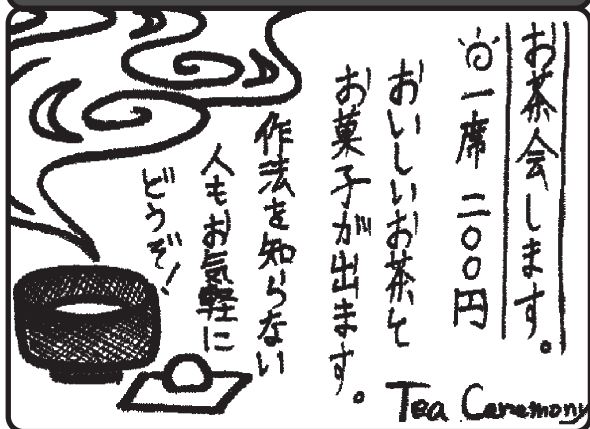 お茶会します。
一席 二〇〇円
おいしいお茶と
お菓子が出ます。
作法を知らない
人もお気軽に
どうぞ!
Tea Ceremony